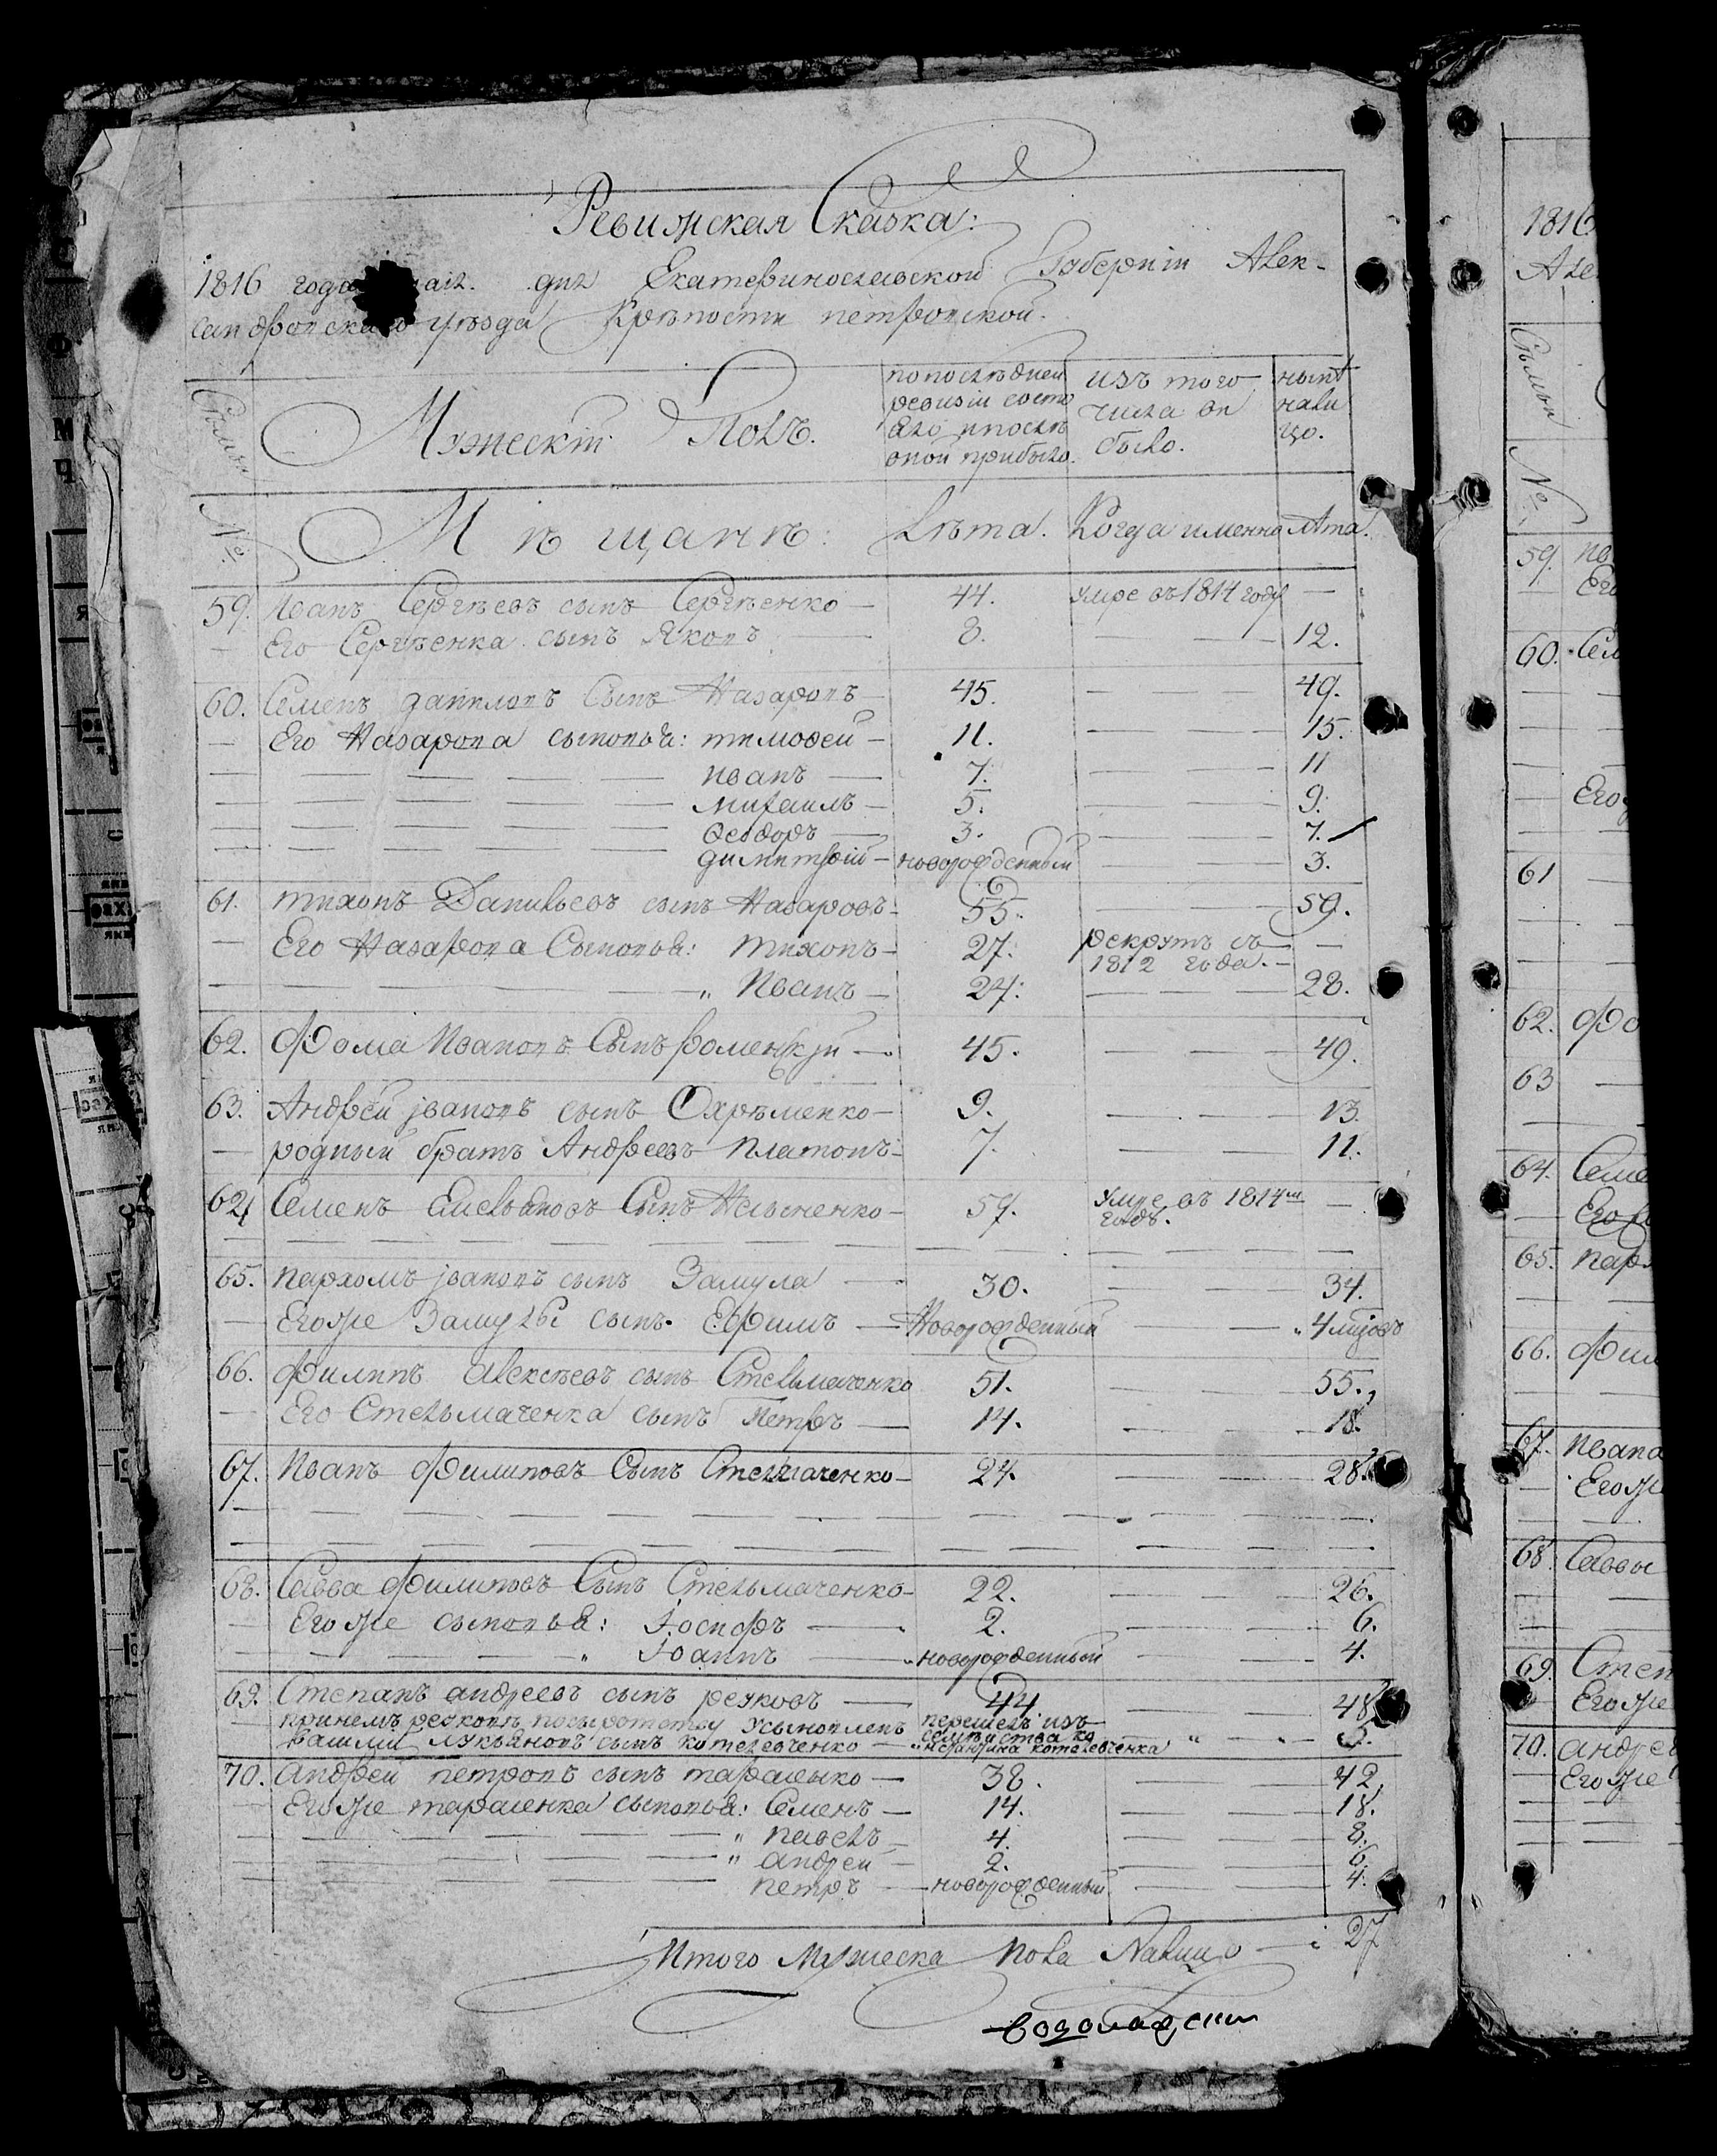 Ревижская Сказка:
1816 года маія дня Екатеринославской Губерніи Алек-
сандровскаго уѣзда Крѣпости петровской.
Семьи
Мужескій Полъ.
попослѣдней
ревизіи состо
яло ипослѣ
оной прибыло.
изъ того
числа вы
было.
нынѣ
нали
цо.
№.
Мѣщанѣ:
Лѣта.
Когда именно
Лѣта.
59. Иванъ Сергѣевъ сынъ Сергѣенко — 44. умре въ 1814 году —
— Его Сергѣенка сынъ Яковъ 8. — 12.
60. Семенъ даниловъ Сынъ Назаровъ — 45. — 49.
— Его Назарова сыновья: тимофей — 11. — 15.
иванъ — 7. — 11
михаилъ — 5. — 9.
Феодоръ — 3. — 7.
димитрій — новорожденный — 3.
61. тихонъ Данильевъ сынъ Назаровъ — 55. — 59.
— Его Назарова Сыновья: тихонъ — 27. рекрутъ съ —
1812 года. —
„ Иванъ — 24. — 28.
62. Фома Ивановъ Сынъ фоменкуи — 45. — 49.
63. Андрей јвановъ сынъ Охрѣменко — 9. — 13.
— родный братъ Андреевъ Платонъ — 7. — 11.
64 Семенъ Емельяновъ Сынъ Нельненко — 57. Умре въ 1814м —
годѣ.
65. пархомъ јвановъ сынъ Замула — 30. — 34.
— Егоже Замулы сынъ Ефимъ — Новорожденный — „ 4 мцовъ
66. Филипъ Алексѣевъ сынъ Стельмаченко 51. — 55.
— Его Стельмаченка сынъ Петръ — 14. — 18.
67. Иванъ Филиповъ Сынъ Стельмаченко — 24. — 28.
68. Савва Филиповъ Сынъ Стельмаченко — 22. — 26.
— Егоже сыновья: Іосифъ — 2. — 6.
„ Іоаннъ — новорожденный — 4.
69. Степанъ андреевъ сынъ резковъ — 44. — 48
принемъ резковѣ посыротству усыновленъ перешелъ изъ
Вашили лукьяновъ сынъ котелевченко — семѣйства ка „ 5.
„ котелевченка
70. Андрей петровъ сынъ таралыко — 38. — 42.
— Егоже тараленка сыновья: Семенъ — 14. — 18.
„ павелъ — 4. — 8.
„ андрей — 2. — 6.
петръ — новорожденный — 4.
Итого Мужеска пола Налицо — 27
1816
Але
Семьи
№.
59. Ив
Его
60. Сем
Его
61
62. Фо
63
64. Семе
Его
65. парх
66. Фил
67. Ивана
Егоже
68. Саввы
69. Степ
Егоже
70. андрея
Егоже